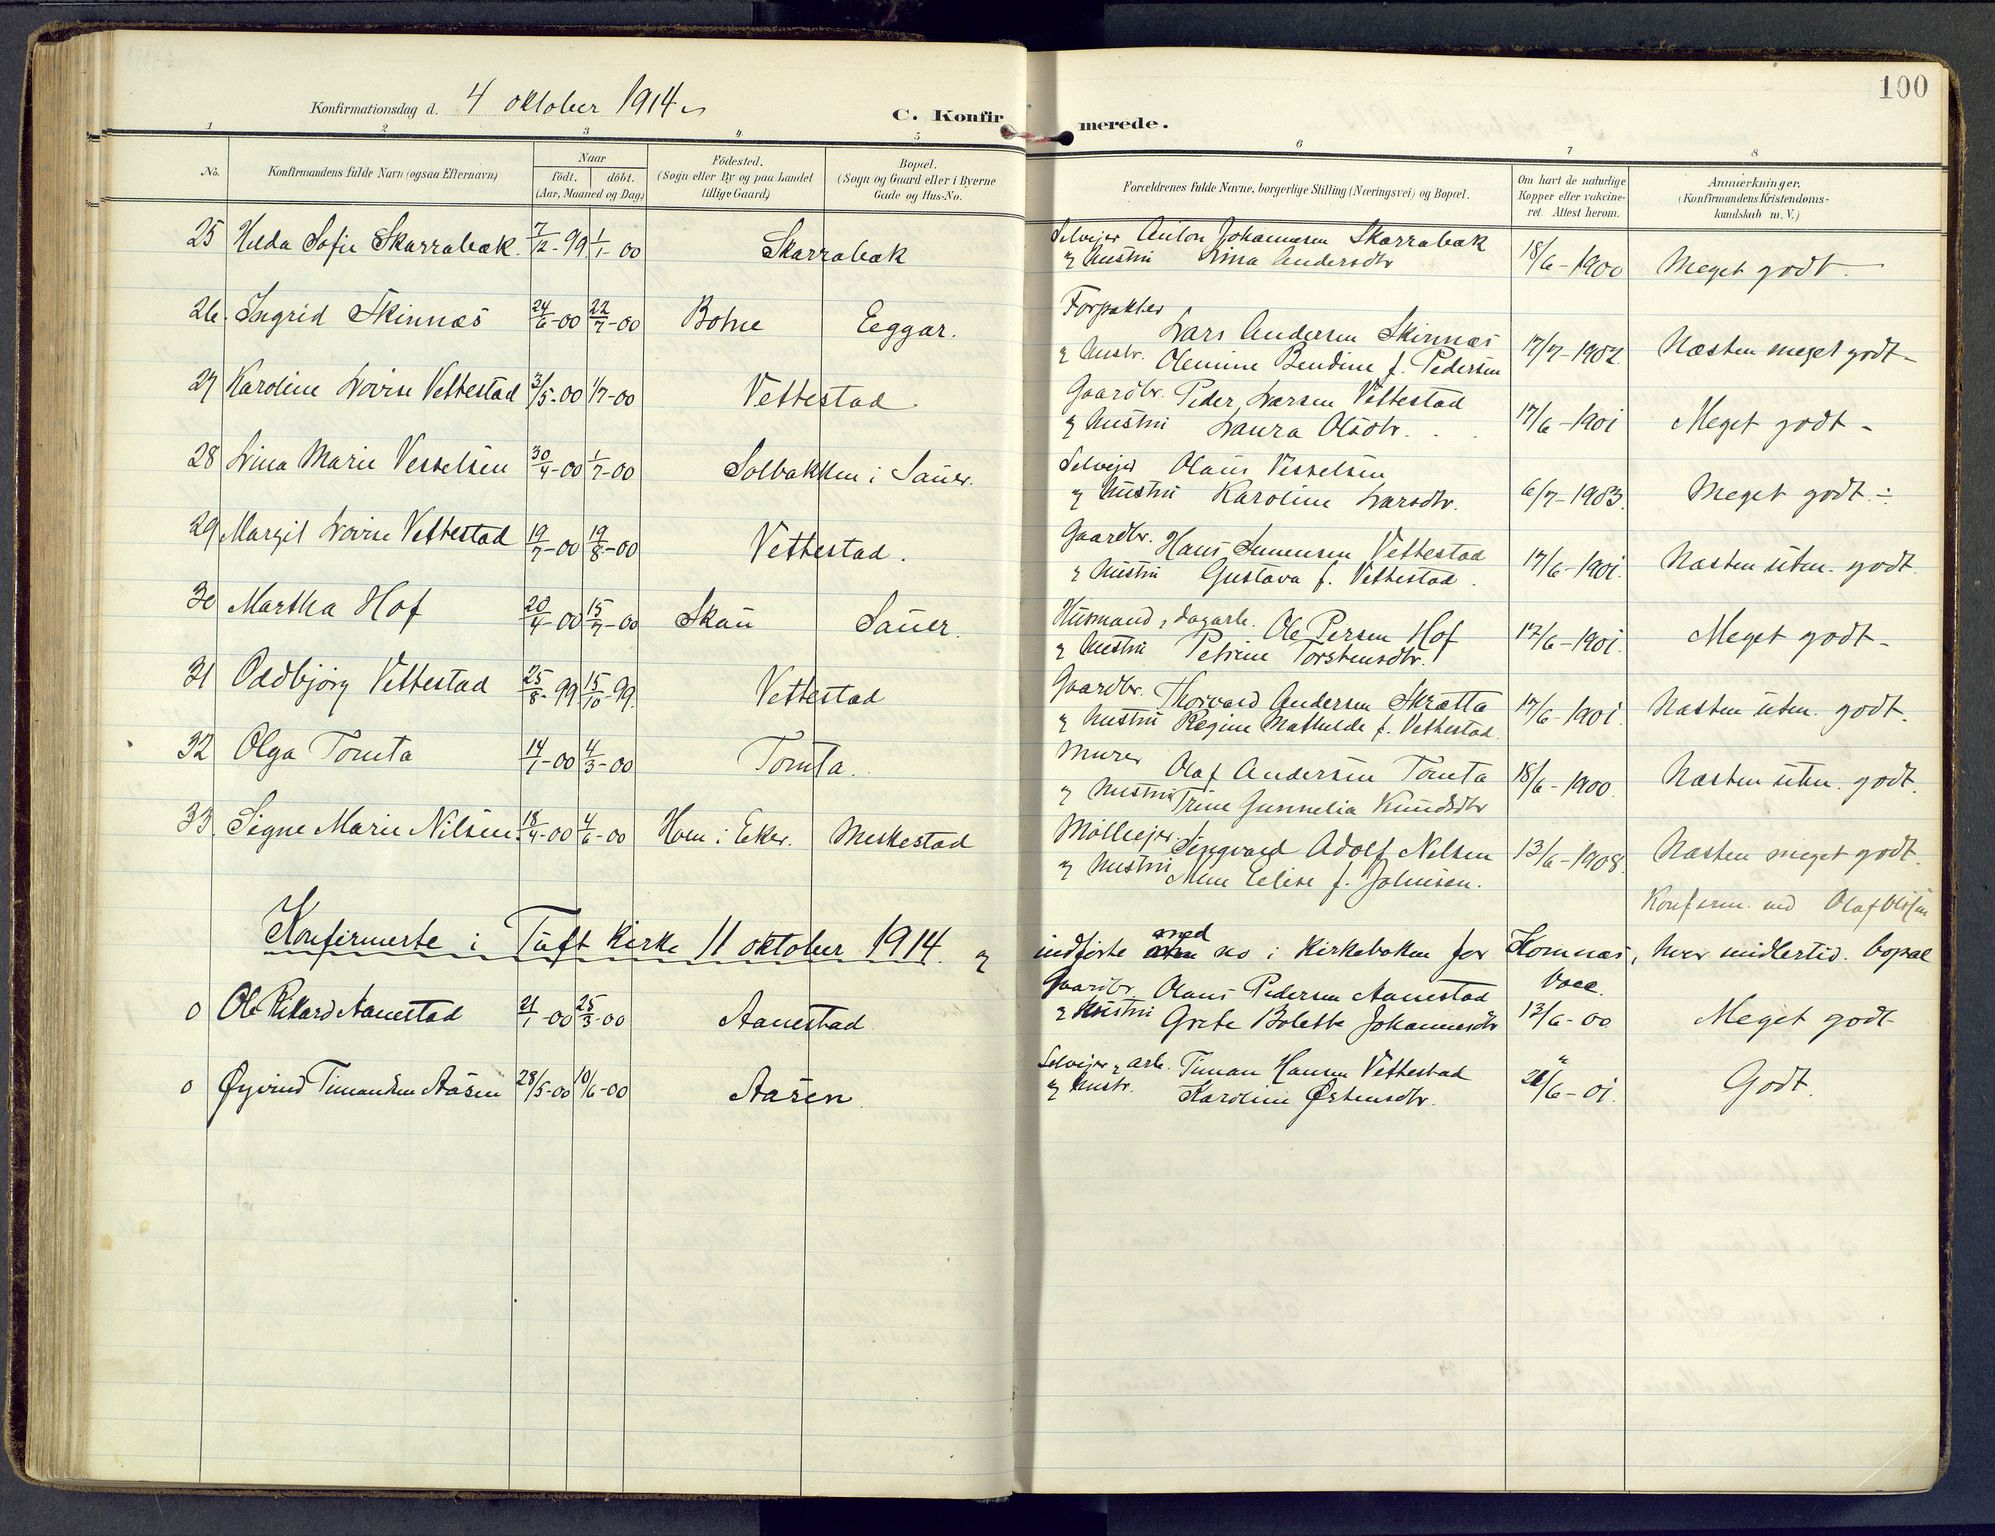 100
Konfirmationsdag d. 4 oktober 1914
C. Konfirmerede.
1 2 3 4 5 6 7 8
No.
Konfirmandens fulde Navn (ogsaa Efternavn)
Naar
födt. döbt.
(Aar, Maaned og Dag)
Födested.
(Sogn eller By og paa Landet
tillige Gaard)
Bopæl.
(Sogn og Gaard eller i Byerne
Gade og Hus-No.
Forældrenes fulde Navne, borgerlige Stilling (Næringsvei) og Bopæl.
Om havt de naturlige
Kopper eller vakcine-
ret Attest herom.
Anmærkninger.
(Konfirmandens Kristendoms-
kundskab m. V.)
25 Hilda Sofie Skarrabæk. 7/12-99 1/1-00 Skarrabæk
Selveier Anton Johannesen Skarrabæk
& Hustru Lina Andersdtr
18/6-1900 Meget godt.
26. Ingrid Skinnes 24/6-00 22/7-00 Botne Eeggar.
Forpakter
Lars Andersen Skinnæs
& Hustr. Olemine Bendine f. Pedersen
17/7-1902. Næsten meget godt-
27 Karoline Lovise Vettestad 3/5-00 1/7-00 Vettestad
Gaardbr. Peder Larsen Vettestad
& Hustru Laura Olsdtr.
17/6-1901 Meget godt-
28 Lina Marie Vesselsen 30/4-00 1/7-00 Solbakken i Sauer.
Selveier Olaus Vesselsen
& Hustru Karoline Larsdtr.
6/7-1903. Meget godt.÷
29 Margit Lovise Vettestad 19/7-00 19/8-00 Vettestad.
Gaardbr. Hans Simensen Vettestad
& Hustru Gustava f. Vettestad.
17/6-1901. Næsten uten. godt.
30 Martha Hof 20/4-00 15/7-00 Skau Sauer.
Husmand, dagarb. Ole Persen Hof
& Hustru Petrine Torstensdtr.
17/6-1901. Meget godt-
31 Oddbjörg Vettestad 25/8-99 15/10-99. Vettestad
Gaardbr. Thorvard Andersen Skrætta
& Hustru Regine Mathilde f. Vettestad.
17/6-1901. Næsten uten. godt.
32 Olga Tomta 14/1-00 4/3-00 Tomta.
Murer Olaf Andersen Tomta
& Hustru Trine Gunnelia Knudsdtr
18/6-1900. Næsten uten. godt.
33. Signe Marie Nilsen. 18/4-00 4/6-00 Hem i Eker. Meskestad
Mölleeier Singvard Adolf Nilsen
& Hustru Elise f. Johnsen.
13/6-1908. Næsten meget godt.
Konfirm. ved Olaf Olsen
Konfirmerte i Tuft kirke 11 oktober 1914. &
indförte med no i Kirkeboken for Komnæs, hvor midlertid. bopæl
0 Ole Rikard Aanestad 21/1-00 25/3-00 Aanestad
Gaardbr. Olaus Pedersen Aanestad
& Hustru Grete Bolette Johannesdtr
Vacc.
12/6-00 Meget godt
0 Øyvind Timandsen Aasen 28/5-00 10/6-00 Aasen
Selveier, arb. Timan Hansen Vettestad
& Hustr. Karoline Østensdtr.
"
21/6-01. Godt.